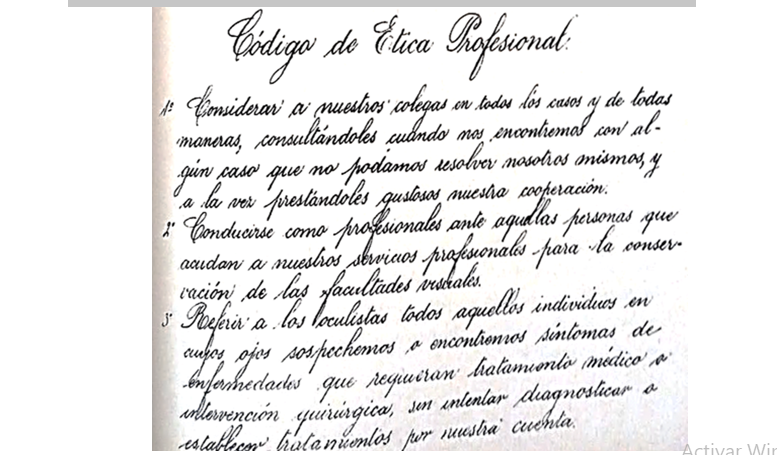 Código de Etica Profesional:
1º Considerar a nuestros colegas en todos los casos y de todas
maneras, consultándoles cuando nos encontremos con al-
gún caso que no podamos resolver nosotros mismos, y
a la vez prestándoles gustosos nuestra cooperación.
2º Conducirse como profesionales ante aquellas personas que
acudan a nuestros servicios profesionales para la conser-
vación de las facultades visuales.
3º Referir a los oculistas todos aquellos individuos en
cuyos ojos sospechemos o encontremos síntomas de
enfermedades que requieran tratamiento médico o
intervención quirúrgica, sin intentar diagnosticar o
establecer tratamientos por nuestra cuenta.
Activar Win